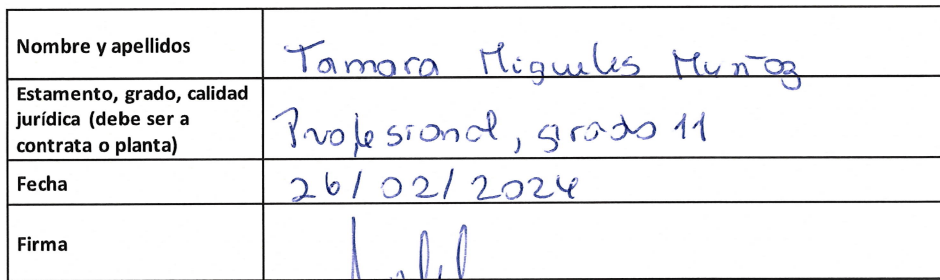 Nombre y apellidos
Tamara Migueles Muñoz
Estamento, grado, calidad
jurídica (debe ser a
contrata o planta)
Profesional, grado 11
Fecha
26/02/2024
Firma